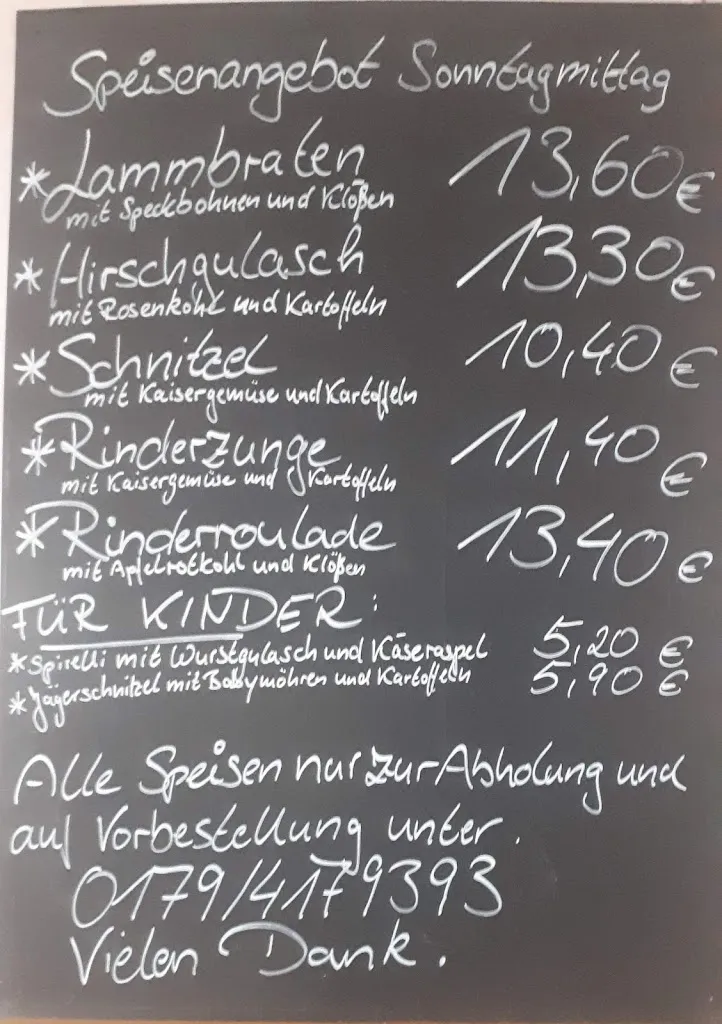 Speisenangebot Sonntagmittag
* Lammbraten 13,60 €
mit Speckbohnen und Klößen
* Hirschgulasch 13,30 €
mit Rosenkohl und Kartoffeln
* Schnitzel 10,40 €
mit Kaisergemüse und Kartoffeln
* Rinderzunge 11,40 €
mit Kaisergemüse und Kartoffeln
* Rinderroulade 13,40 €
mit Apfelrotkohl und Klößen
FÜR KINDER:
* Spirelli mit Wurstgulasch und Käseraspel 5,20 €
* Jägerschnitzel mit Babymöhren und Kartoffeln 5,90 €
Alle Speisen nur zur Abholung und
auf Vorbestellung unter.
0179/4179393
Vielen Dank.